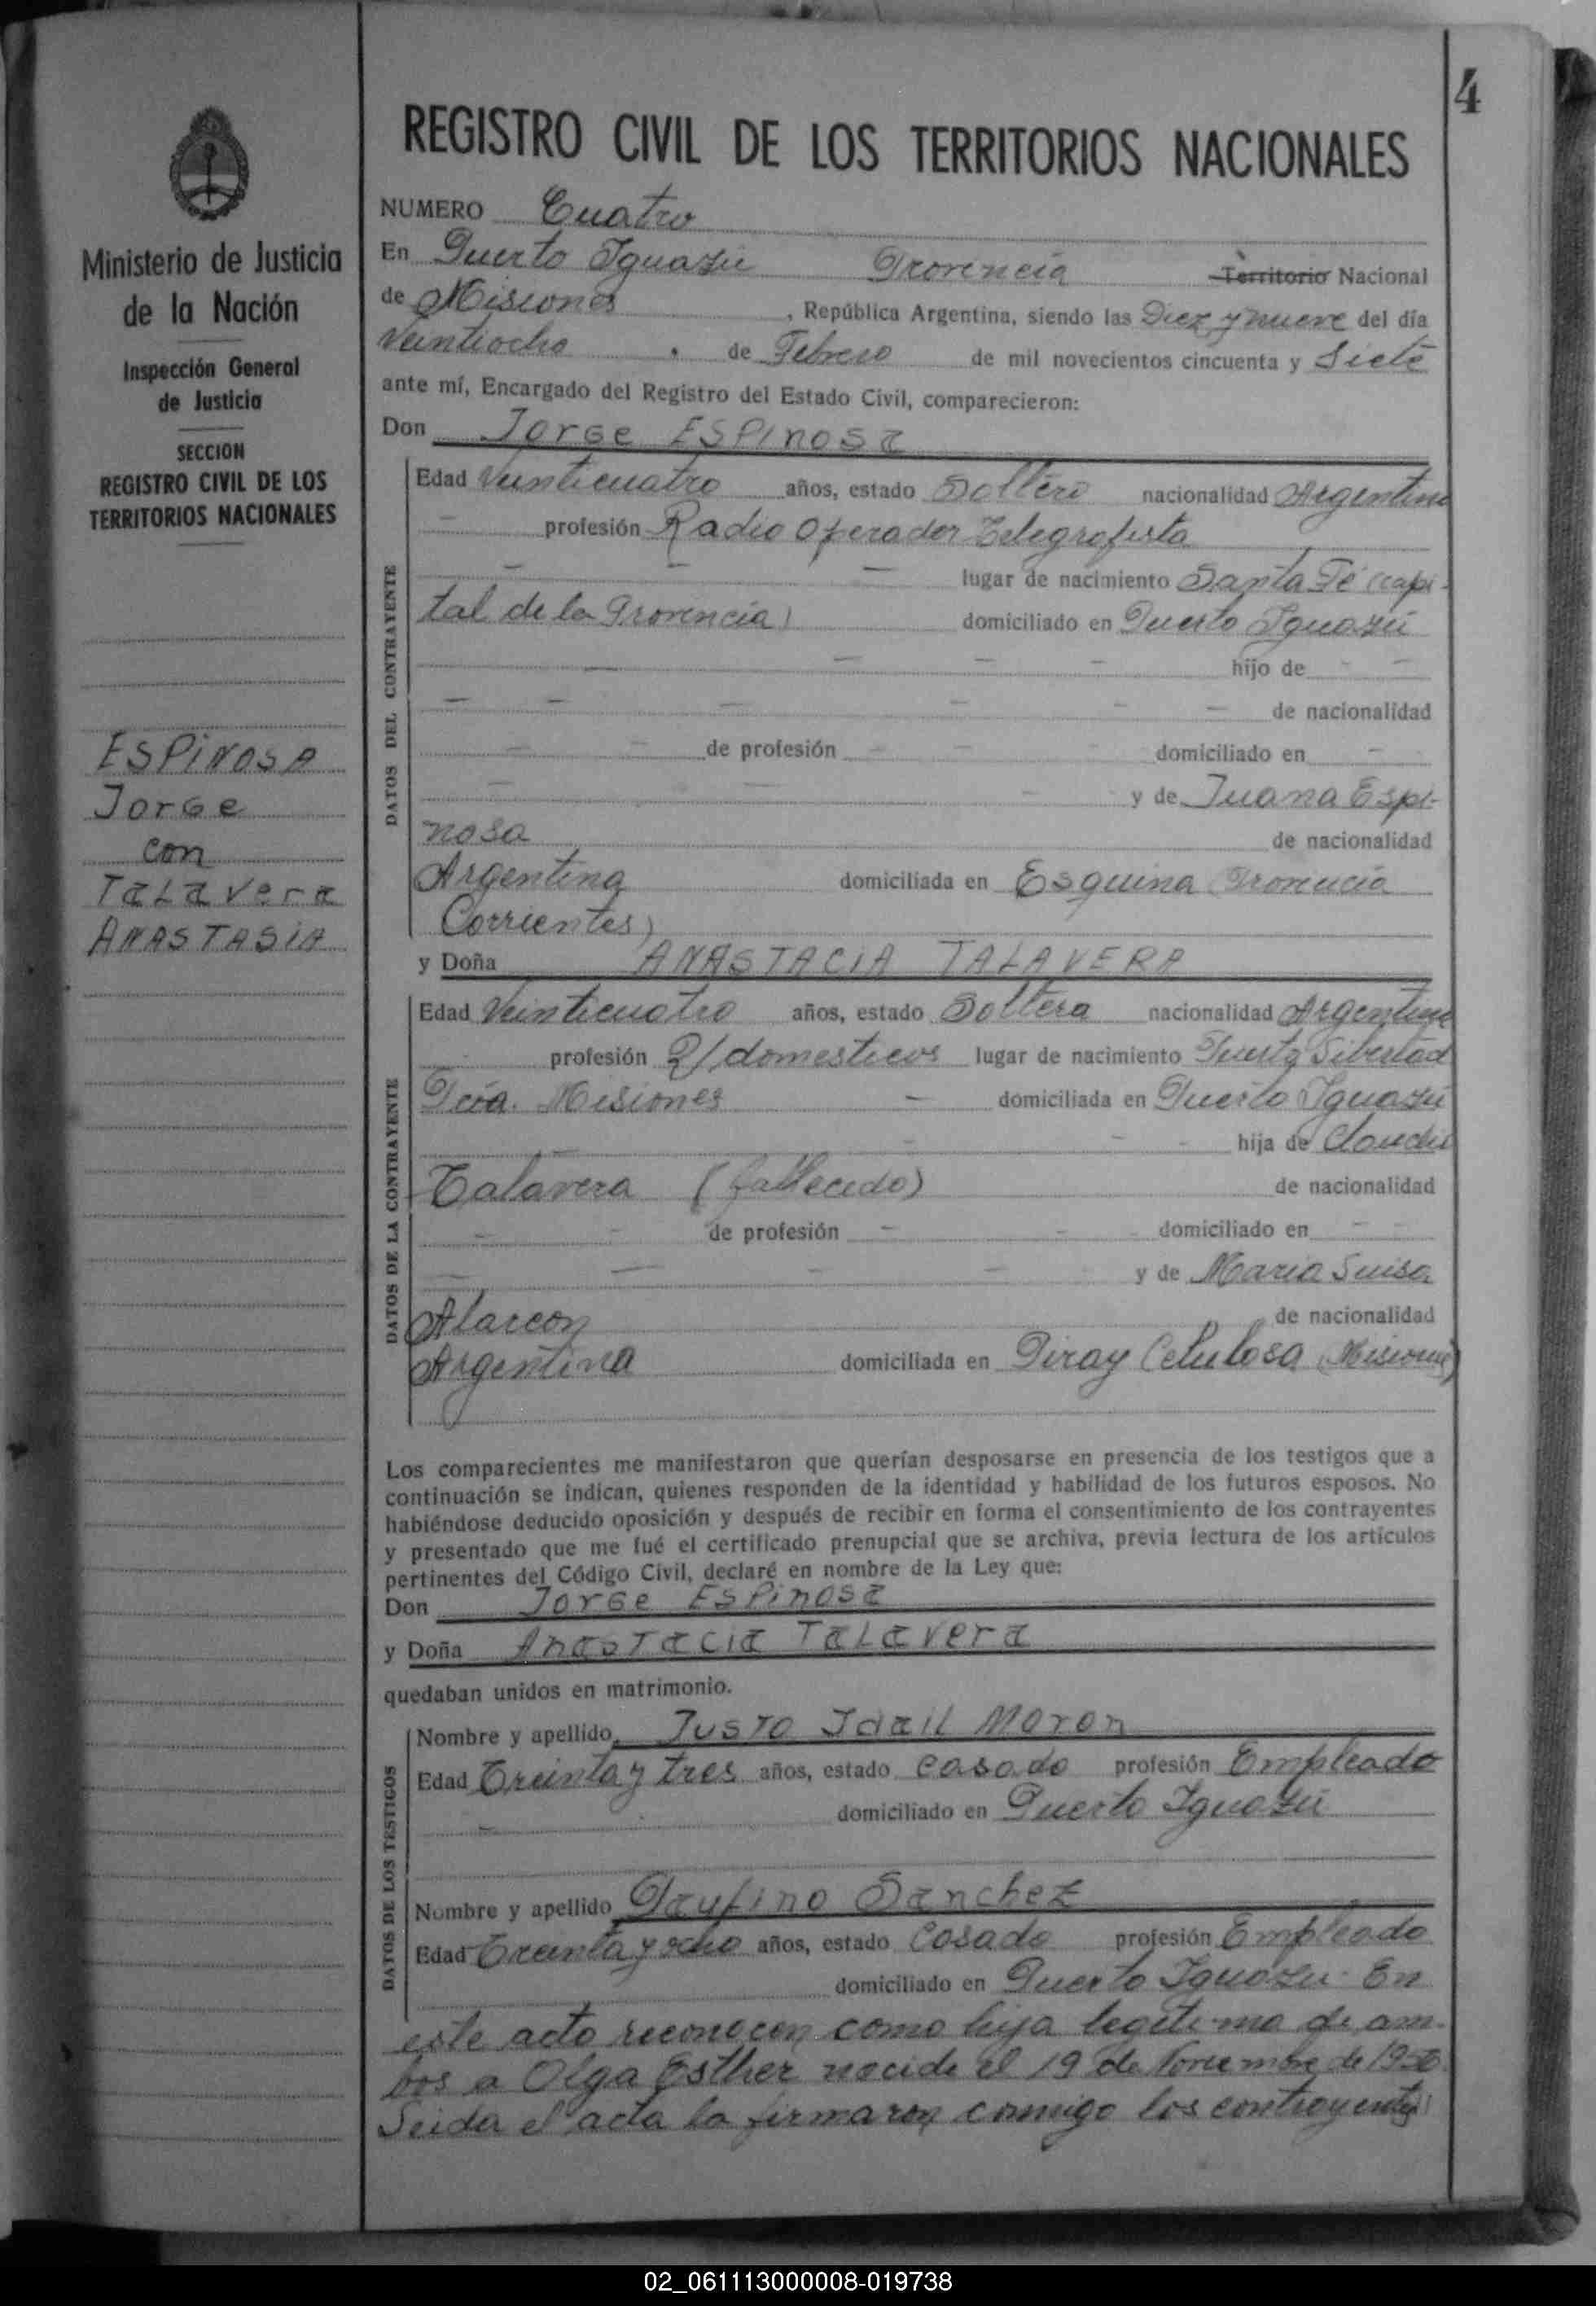 4
REGISTRO CIVIL DE LOS TERRITORIOS NACIONALES
Ministerio de Justicia
de la Nación
Inspección General
de Justicia
SECCION
REGISTRO CIVIL DE LOS
TERRITORIOS NACIONALES
ESPINOSA
Jorge
con
TaLavera
ANASTASIA
NUMERO Cuatro
En Puerto Iguazú Provincia Territorio Nacional
de Misiones, República Argentina, siendo las Diez y nueve del día
Veintiocho de Febrero de mil novecientos cincuenta y Siete
ante mí, Encargado del Registro del Estado Civil, comparecieron:
Don Jorge ESPINOSA
DATOS DEL CONTRAYENTE
Edad Veinticuatro años, estado Soltero nacionalidad Argentino
- profesión Radio Operador Telegrafista
- - - lugar de nacimiento Santa Fé (capi-
tal de la Provincia) domiciliado en Puerto Iguazú
- - - hijo de - -
- - - - - de nacionalidad
- - de profesión - - - domiciliado en -
- - - y de Juana Espi-
nosa de nacionalidad
Argentina domiciliada en Esquina (Provincia
Corrientes)
y Doña ANASTACIA TALAVERA
DATOS DE LA CONTRAYENTE
Edad Veinticuatro años, estado Soltera nacionalidad Argentina
profesión Q/domesticos lugar de nacimiento Puerto Libertad
Pcia. Misiones - domiciliada en Puerto Iguazú
- - - hija de Claudio
Talavera (fallecido) de nacionalidad
- - de profesión - - - domiciliado en - -
- - - - y de Maria Luisa
Alarcon de nacionalidad
Argentina domiciliada en Piray Celulosa (Misiones)
Los comparecientes me manifestaron que querían desposarse en presencia de los testigos que a
continuación se indican, quienes responden de la identidad y habilidad de los futuros esposos. No
habiéndose deducido oposición y después de recibir en forma el consentimiento de los contrayentes
y presentado que me fué el certificado prenupcial que se archiva, previa lectura de los artículos
pertinentes del Código Civil, declaré en nombre de la Ley que:
Don Jorge ESPINOSA
y Doña Anastacia TaLavera
quedaban unidos en matrimonio.
DATOS DE LOS TESTIGOS
Nombre y apellido Justo Moron
Edad Treinta y tres años, estado casado profesión Empleado
- domiciliado en Puerto Iguazú
Nombre y apellido Sanchez
Edad Treinta y ocho años, estado Casado profesión Empleado
domiciliado en Puerto Iguazu - En
este acto reconocen como hija legitima de am-
bos a Olga Esther nacida el 19 de Noviembre de 1956
Leida el acta la firmaron conmigo los contrayentes
02_061113000008-019738